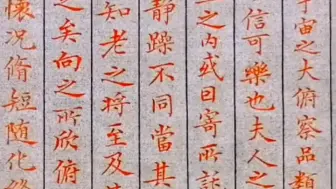 宇宙之大俯察品類
信可樂也夫人之
之内或因寄所託
静躁不同當其
知老之将至及其
之矣向之所欣俯
懷況脩短随化